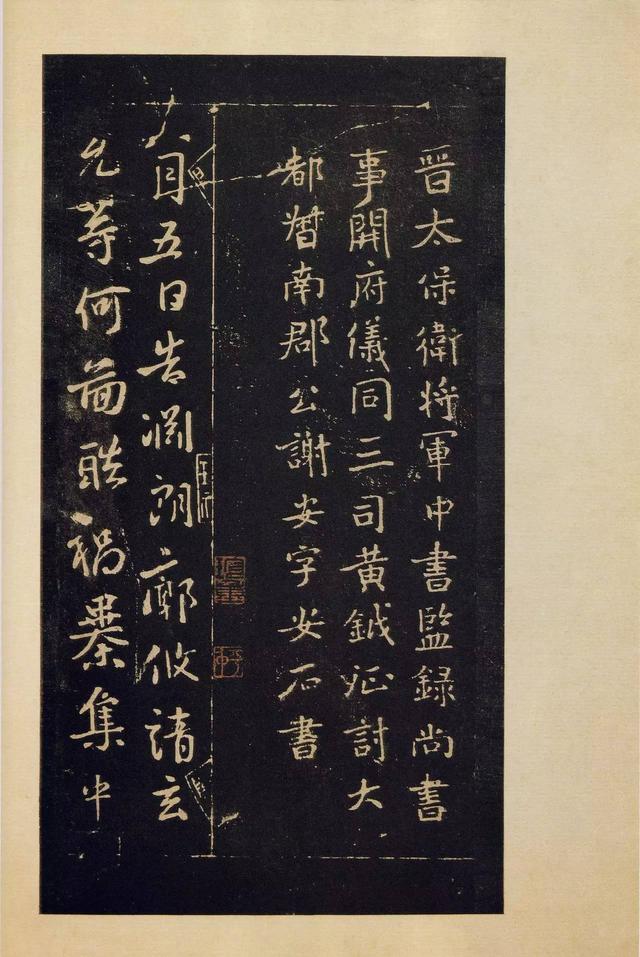 晋太保衛將軍中書監錄尚書
事開府儀同三司黃鉞征討大
都督南郡公謝安字安石書
八月五日告淵朗廓攸靖玄
允等何圖酷禍暴集中